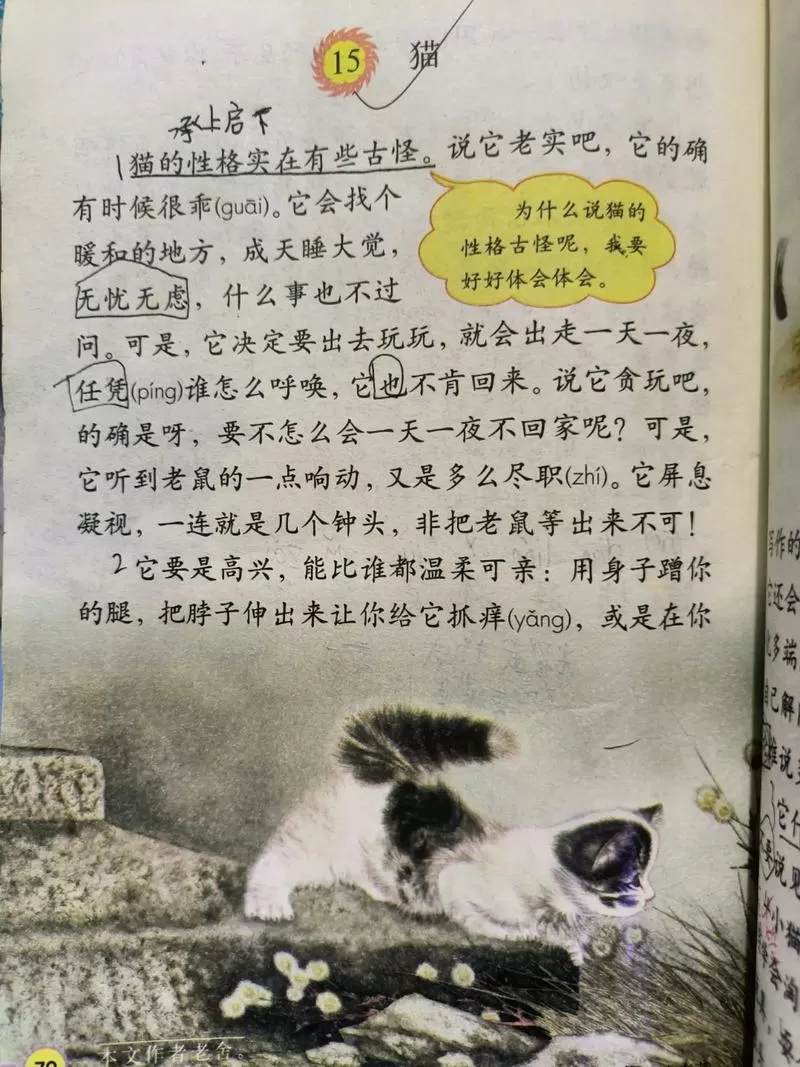 15 猫
承上启下
1猫的性格实在有些古怪。说它老实吧，它的确
有时候很乖(guāi)。它会找个
暖和的地方，成天睡大觉，
无忧无虑，什么事也不过
为什么说猫的
性格古怪呢，我要
好好体会体会。
问。可是，它决定要出去玩玩，就会出走一天一夜，
任凭(píng)谁怎么呼唤，它也不肯回来。说它贪玩吧，
的确是呀，要不怎么会一天一夜不回家呢？可是，
它听到老鼠的一点响动，又是多么尽职(zhí)。它屏息
凝视，一连就是几个钟头，非把老鼠等出来不可！
2它要是高兴，能比谁都温柔可亲：用身子蹭你
的腿，把脖子伸出来让你给它抓痒(yǎng)，或是在你
本文作者老舍。
写作的
它还会
多端
己解
谁说
它什
说见
小猫
淘